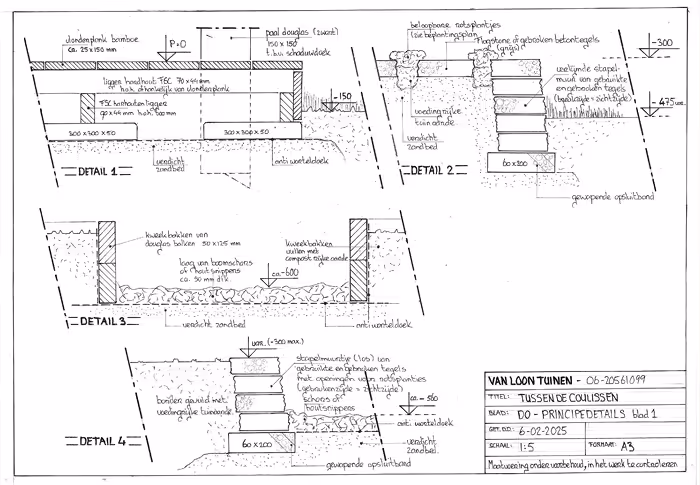 vlonderplank bamboe
ca. 25 x 150 mm
P=0
paal douglas (zwart)
150 x 150
t.b.v. schaduwdoek
ligger hardhout FSC 70 x 44 mm
h.o.h. afhankelijk van vlonderplank
FSC hardhouten ligger
90 x 44 mm h.o.h. 600 mm
-150
300 x 300 x 50
300 x 300 x 50
verdicht
zandbed
anti worteldoek
DETAIL 1
beloopbare rotsplantjes
(zie beplantingsplan)
Flagstone of gebroken betontegels
(grijs)
-300
verlijmde stapel-
muur van gebruikte
en gebroken tegels
(breukzijde = zichtzijde)
-475
voedingrijke
tuinaarde
verdicht
zandbed
60 x 200
DETAIL 2
gewapende opsluitband
kweekbakken van
douglas balken 50 x 125 mm
kweekbakken
vullen met
compost rijke aarde
laag van boomschors
of houtsnippers
ca. 50 mm dik.
ca -600
DETAIL 3
verdicht zandbed
anti worteldoek
var. (-300 max.)
stapelmuurtje (los) van
gebruikte en gebroken tegels
met openingen voor rotsplantjes
(gebrokenzijde = zichtzijde)
schors of
houtsnippers
ca. -560
border gevuld met
voedingrijke tuinaarde
anti worteldoek
DETAIL 4
60 x 200
verdicht
zandbed
gewapende opsluitband
VAN LOON TUINEN - 06-20561099
TITEL: TUSSEN DE COULISSEN
BLAD: DO - PRINCIPEDETAILS blad 1
GET. D.D.: 6-02-2025
SCHAAL: 1:5 FORMAAT: A3
Maatvoering onder voorbehoud, in het werk te controleren